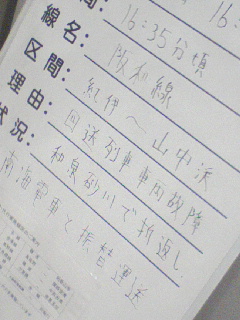 間: 16:35分頃 16:
線名: 阪和線
区間: 紀伊〜山中渓
理由: 回送列車車両故障
状況: 和泉砂川で折返し
南海電車と振替運送